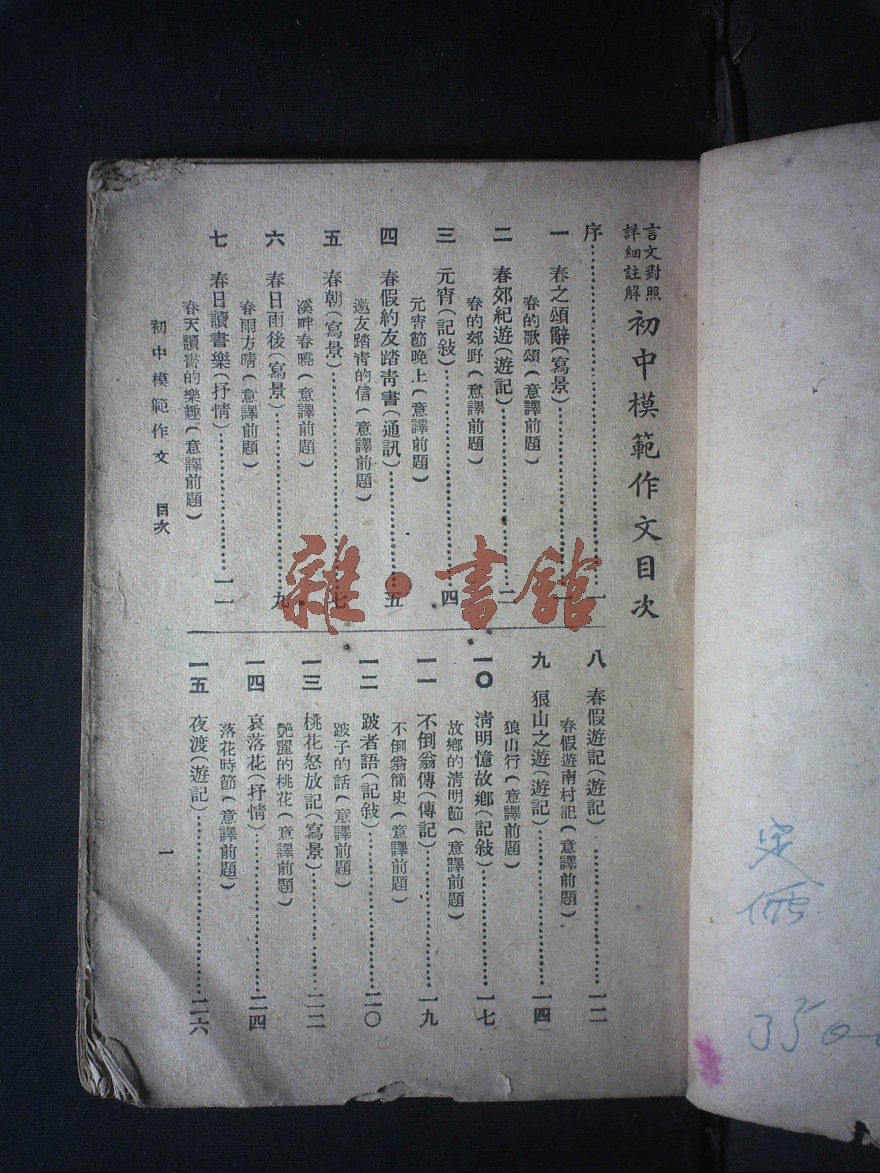 言文對照
詳細註解
初中模範作文目次
序……………一
一 春之頌辭(寫景)……………一
春的歌頌(意譯前題)
二 春郊紀遊(遊記)……………二
春的郊野(意譯前題)
三 元宵(記敍)……………四
元宵節晚上(意譯前題)
四 春假約友踏靑書(通訊)……………五
邀友踏靑的信(意譯前題)
五 春朝(寫景)……………七
溪畔春曉(意譯前題)
六 春日雨後(寫景)……………九
春雨方晴(意譯前題)
七 春日讀書樂(抒情)……………一一
春天讀書的樂趣(意譯前題)
八 春假遊記(遊記)……………一二
春假遊南村記(意譯前題)
九 狼山之遊(遊記)……………一四
狼山行(意譯前題)
一〇 淸明憶故鄉(記敍)……………一七
故鄉的淸明節(意譯前題)
一一 不倒翁傳(傳記)……………一九
不倒翁簡史(意譯前題)
一二 跛者語(記敍)……………二〇
跛子的話(意譯前題)
一三 桃花怒放記(寫景)……………二二
艷麗的桃花(意譯前題)
一四 哀落花(抒情)……………二四
落花時節(意譯前題)
一五 夜渡(遊記)……………二六
初中模範作文 目次
一
雜·書館